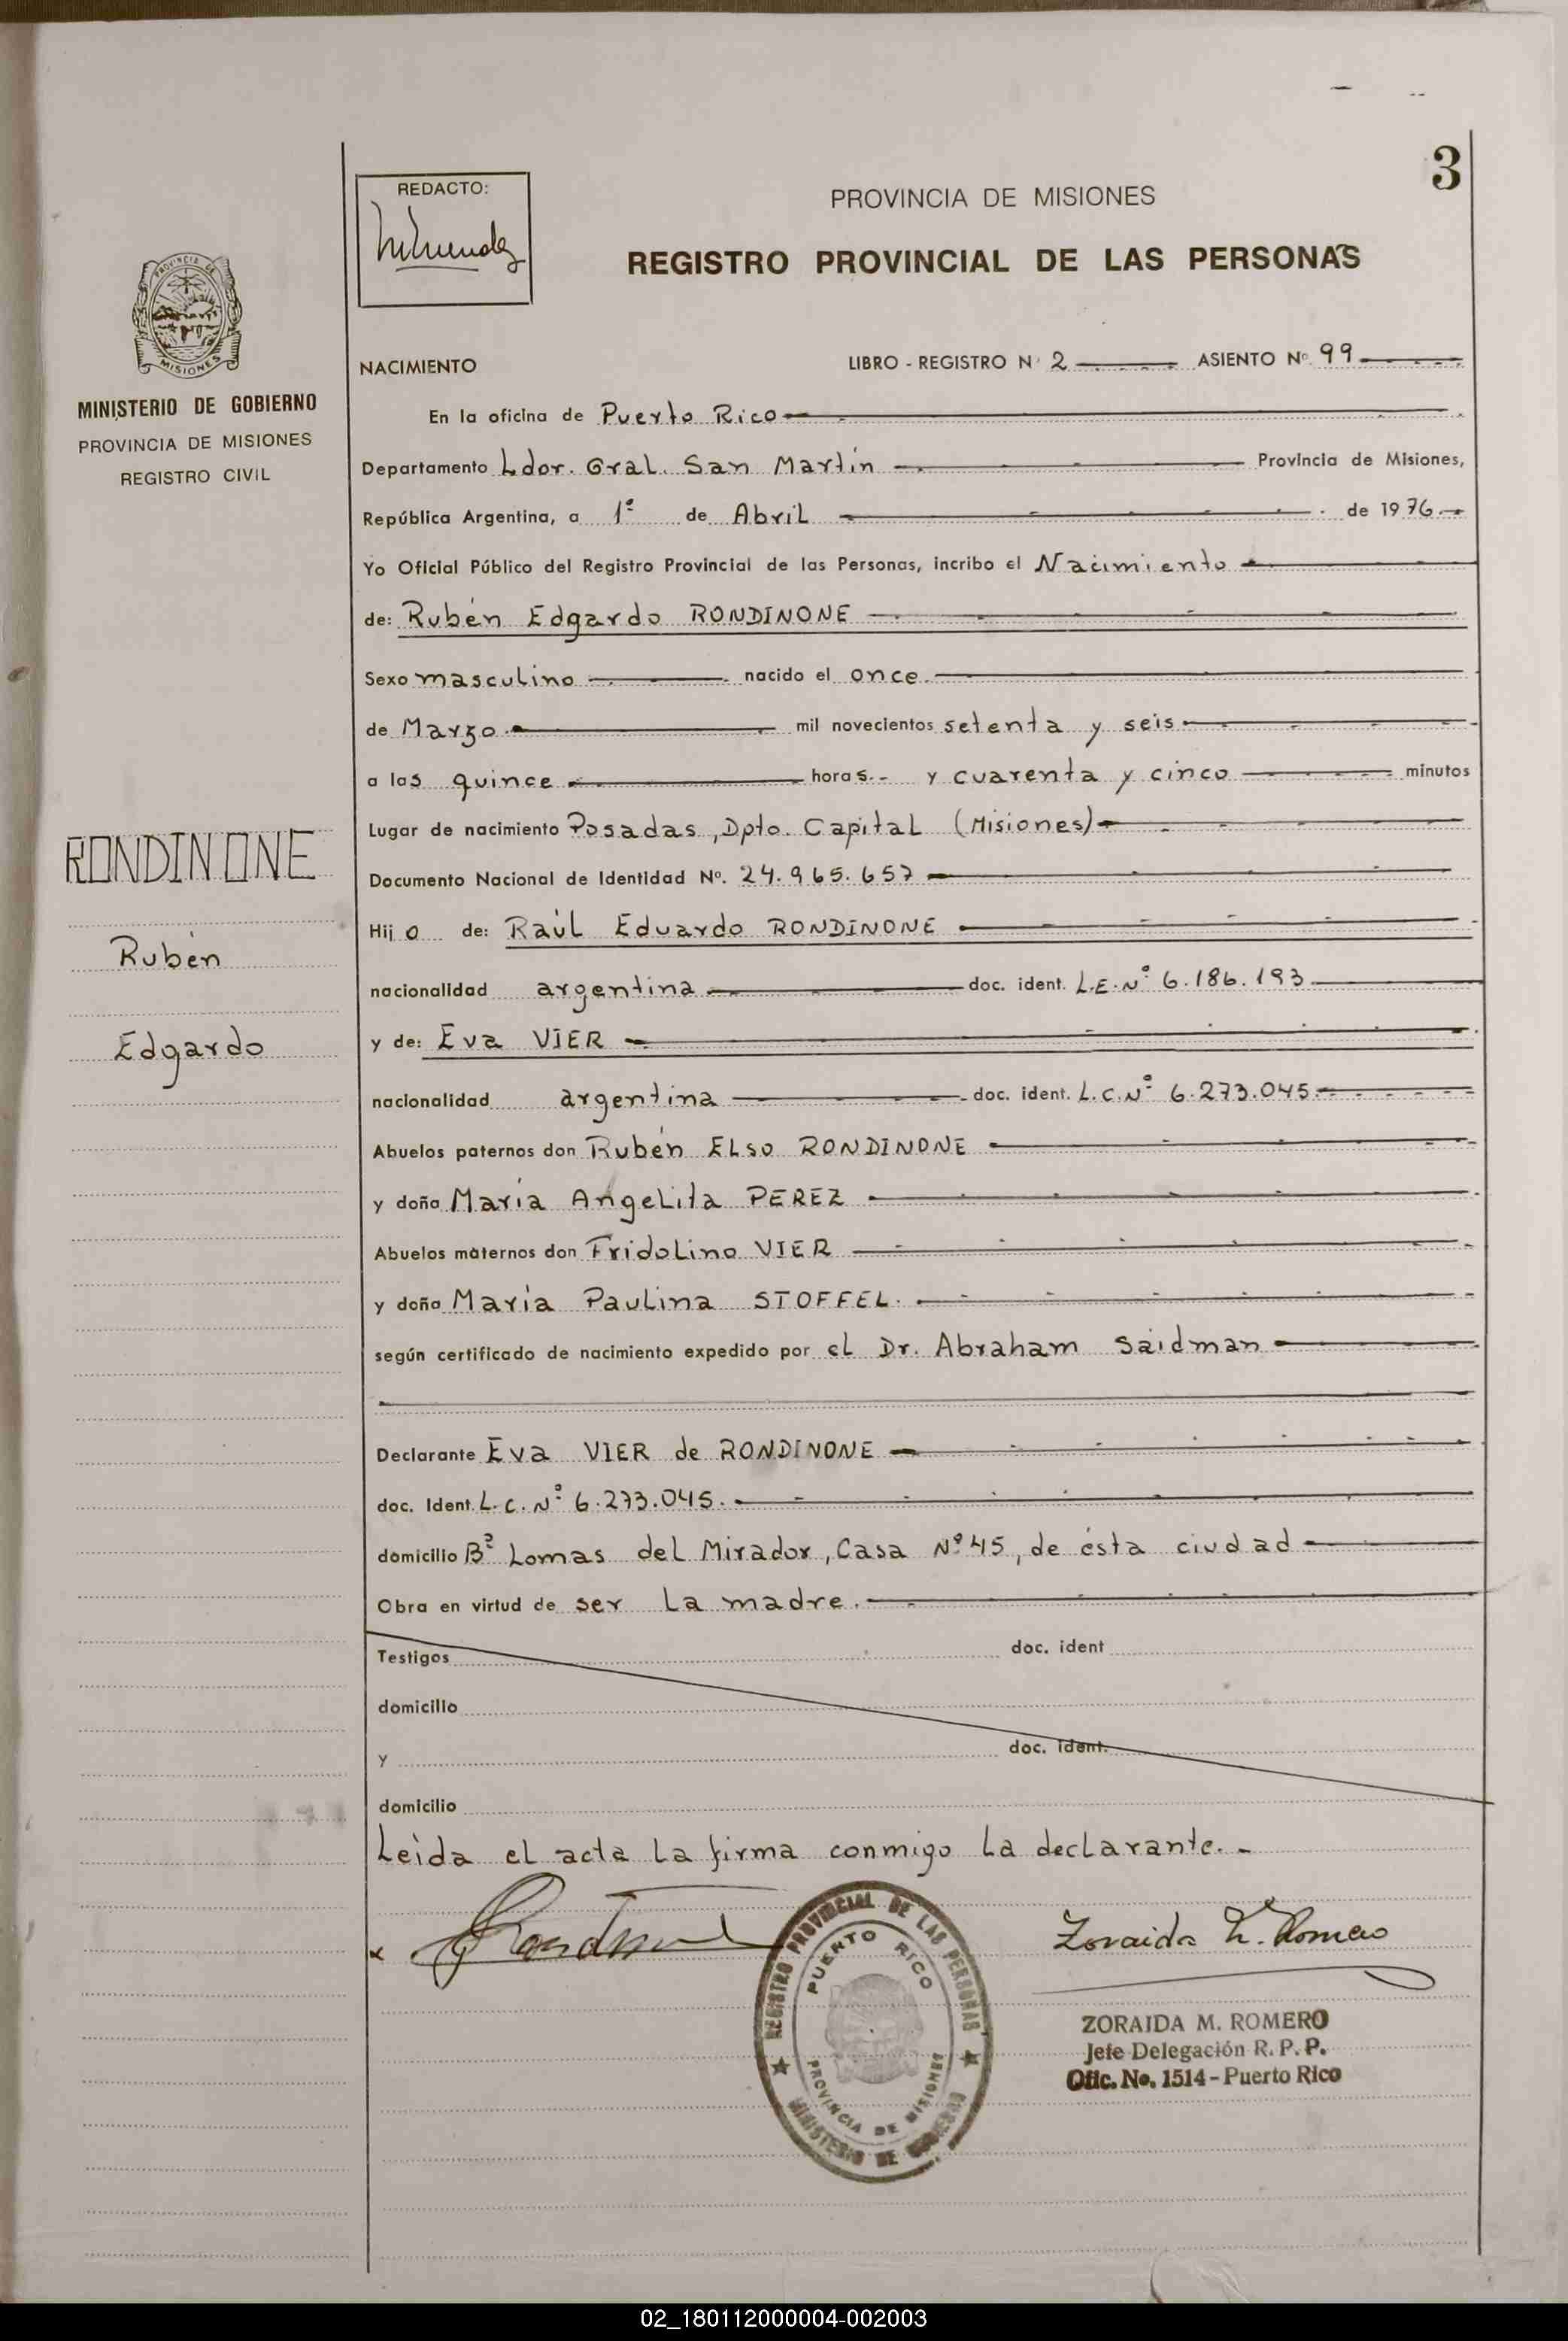 3
REDACTO:
PROVINCIA DE MISIONES
REGISTRO PROVINCIAL DE LAS PERSONAS
PROVINCIA DE
MISIONES
MINISTERIO DE GOBIERNO
PROVINCIA DE MISIONES
REGISTRO CIVIL
RONDINONE
Rubén
Edgardo
NACIMIENTO LIBRO - REGISTRO Nº 2 ASIENTO Nº 99
En la oficina de Puerto Rico
Departamento Ldor. Gral. San Martín Provincia de Misiones,
República Argentina, a 1º de Abril de 1976.-
Yo Oficial Público del Registro Provincial de las Personas, incribo el Nacimiento
de: Rubén Edgardo RONDINONE
Sexo masculino nacido el once.
de Marzo mil novecientos setenta y seis
a las quince horas.- y cuarenta y cinco minutos
Lugar de nacimiento Posadas, Dpto. Capital (Misiones)
Documento Nacional de Identidad Nº. 24.965.657
Hijo de: Raúl Eduardo RONDINONE
nacionalidad argentina doc. ident. L.E.Nº 6.186.193
y de: Eva VIER
nacionalidad argentina doc. ident. L.C.Nº 6.273.045.
Abuelos paternos don Rubén ELso RONDINONE
y doña María AngeLita PEREZ
Abuelos maternos don FridoLino VIER
y doña María PauLina STOFFEL.
según certificado de nacimiento expedido por el Dr. Abraham Saidman
Declarante Eva VIER de RONDINONE
doc. Ident. L.C.Nº 6.273.045.
domicilio Bº Lomas del Mirador, Casa Nº 45, de ésta ciudad
Obra en virtud de ser La madre.
Testigos doc. ident
domicilio
y doc. ident.
domicilio
Leída el acta La firma conmigo La declarante.-
REGISTRO PROVINCIAL DE LAS PERSONAS
PUERTO RICO
PROVINCIA DE MISIONES
MINISTERIO DE GOBIERNO
Zoraida M. Romero
ZORAIDA M. ROMERO
Jefe Delegación R. P. P.
Ofic. No. 1514 - Puerto Rico
02_180112000004-002003